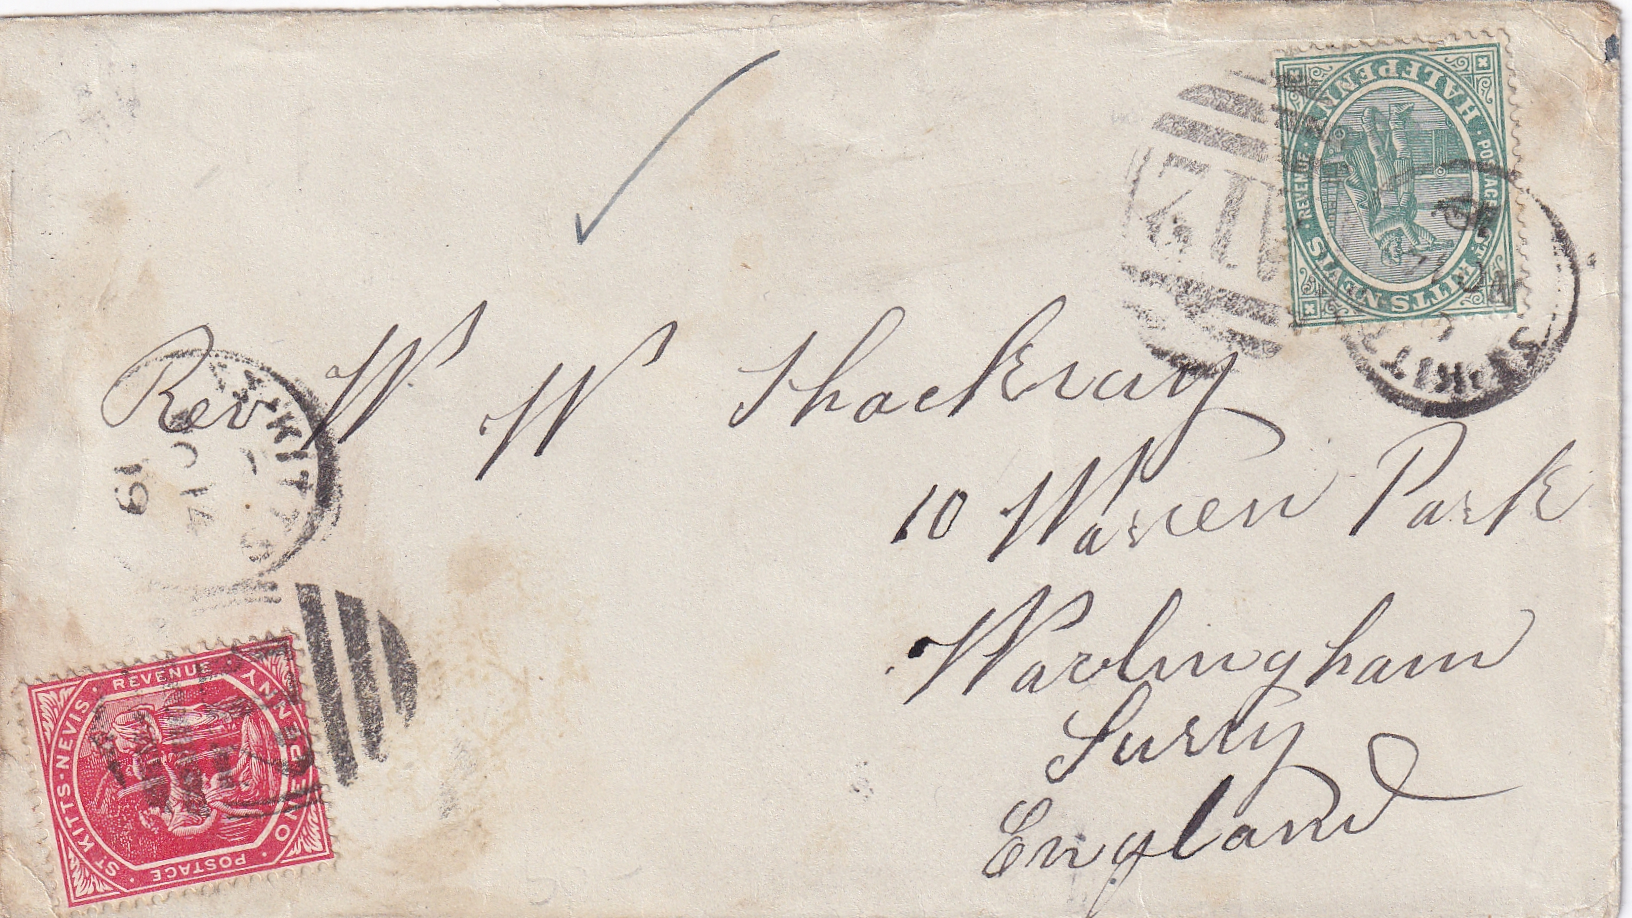 Rev W W Thackray
10 Warren Park
Warlingham
Surry
England
ST KITTS·NEVIS
POSTAGE REVENUE
HALFPENNY
ST KITTS·NEVIS
POSTAGE REVENUE
ONE PENNY
A12
ST. KITTS
ST. KITTS
OC 14